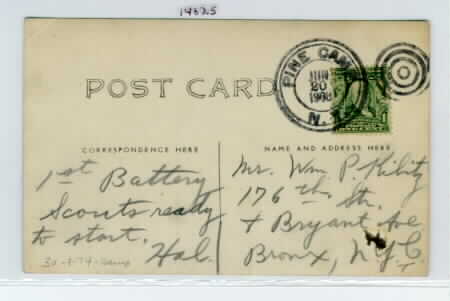 14325
POST CARD
PINE CAMP
JUN
20
1908
N.Y.
CORRESPONDENCE HERE
NAME AND ADDRESS HERE
1st Battery
Scouts ready
to start.
Hal.
Mr. Wm. P.
176 th Str.
+ Bryant Ave
Bronx, N.Y.C.